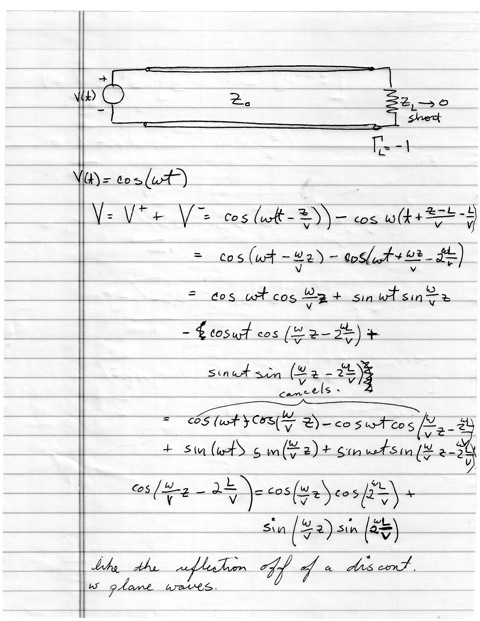 +
V(t)
-
Z₀
Z_L → 0
short
Γ_L = -1
V(t) = cos(ωt)
V = V⁺ + V⁻ = cos(ω(t - z/v)) - cos ω(t + (z-L)/v - L/v)
= cos(ωt - ω/v z) - cos(ωt + ωz/v - 2ωL/v)
= cos ωt cos ω/v z + sin ωt sin ω/v z
- { cos ωt cos (ω/v z - 2ωL/v) +
sin ωt sin (ω/v z - 2ωL/v) }
cancels.
= cos(ωt) cos(ω/v z) - cos ωt cos(ω/v z - 2ωL/v)
+ sin(ωt) sin(ω/v z) + sin ωt sin(ω/v z - 2ωL/v)
cos(ω/v z - 2 L/v) = cos(ω/v z) cos(2ωL/v) +
sin(ω/v z) sin(2ωL/v)
like the reflection off of a discont.
w plane waves.